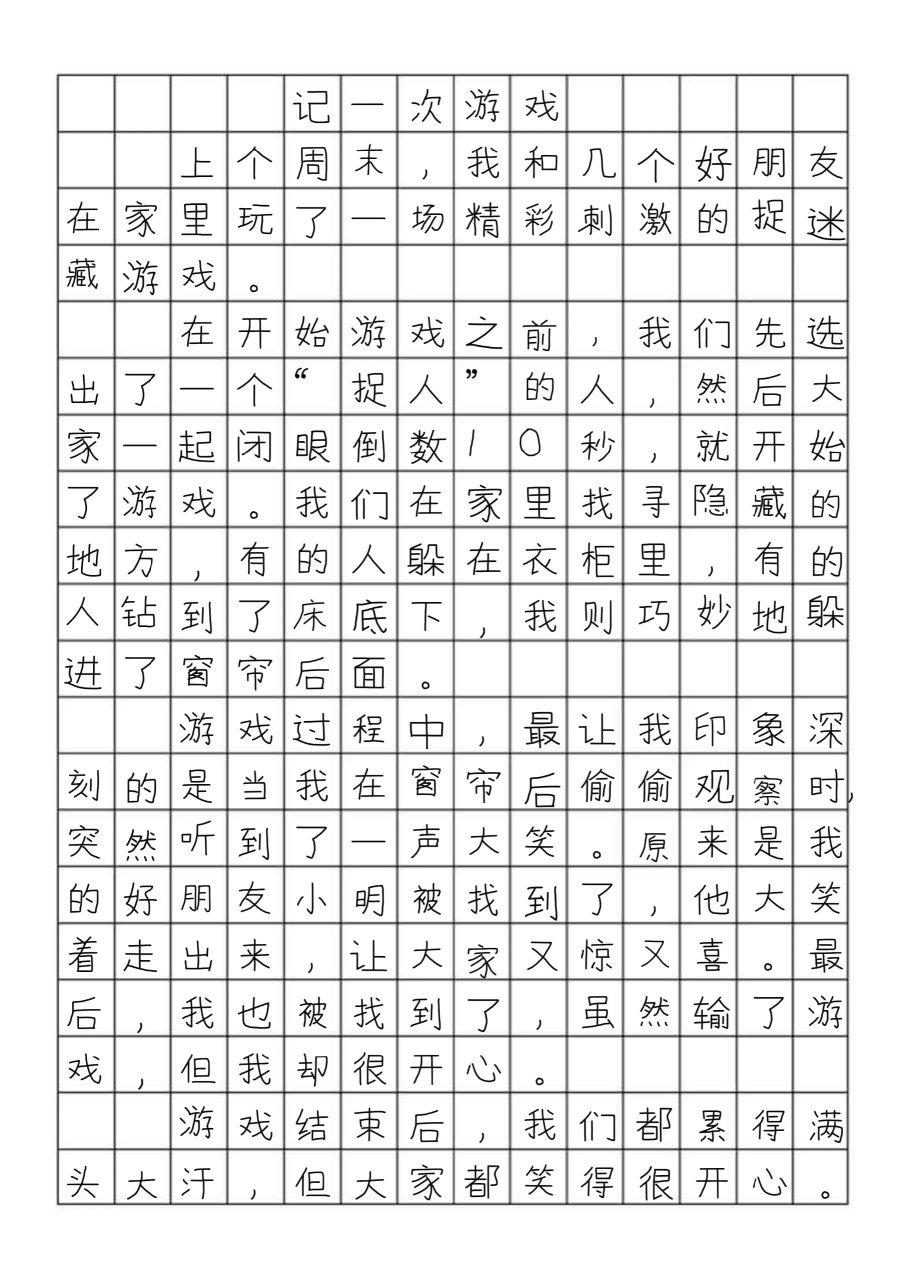 记一次游戏
上个周末，我和几个好朋友
在家里玩了一场精彩刺激的捉迷
藏游戏。
在开始游戏之前，我们先选
出了一个“捉人”的人，然后大
家一起闭眼倒数10秒，就开始
了游戏。我们在家里找寻隐藏的
地方，有的人躲在衣柜里，有的
人钻到了床底下，我则巧妙地躲
进了窗帘后面。
游戏过程中，最让我印象深
刻的是当我在窗帘后偷偷观察时，
突然听到了一声大笑。原来是我
的好朋友小明被找到了，他大笑
着走出来，让大家又惊又喜。最
后，我也被找到了，虽然输了游
戏，但我却很开心。
游戏结束后，我们都累得满
头大汗，但大家都笑得很开心。